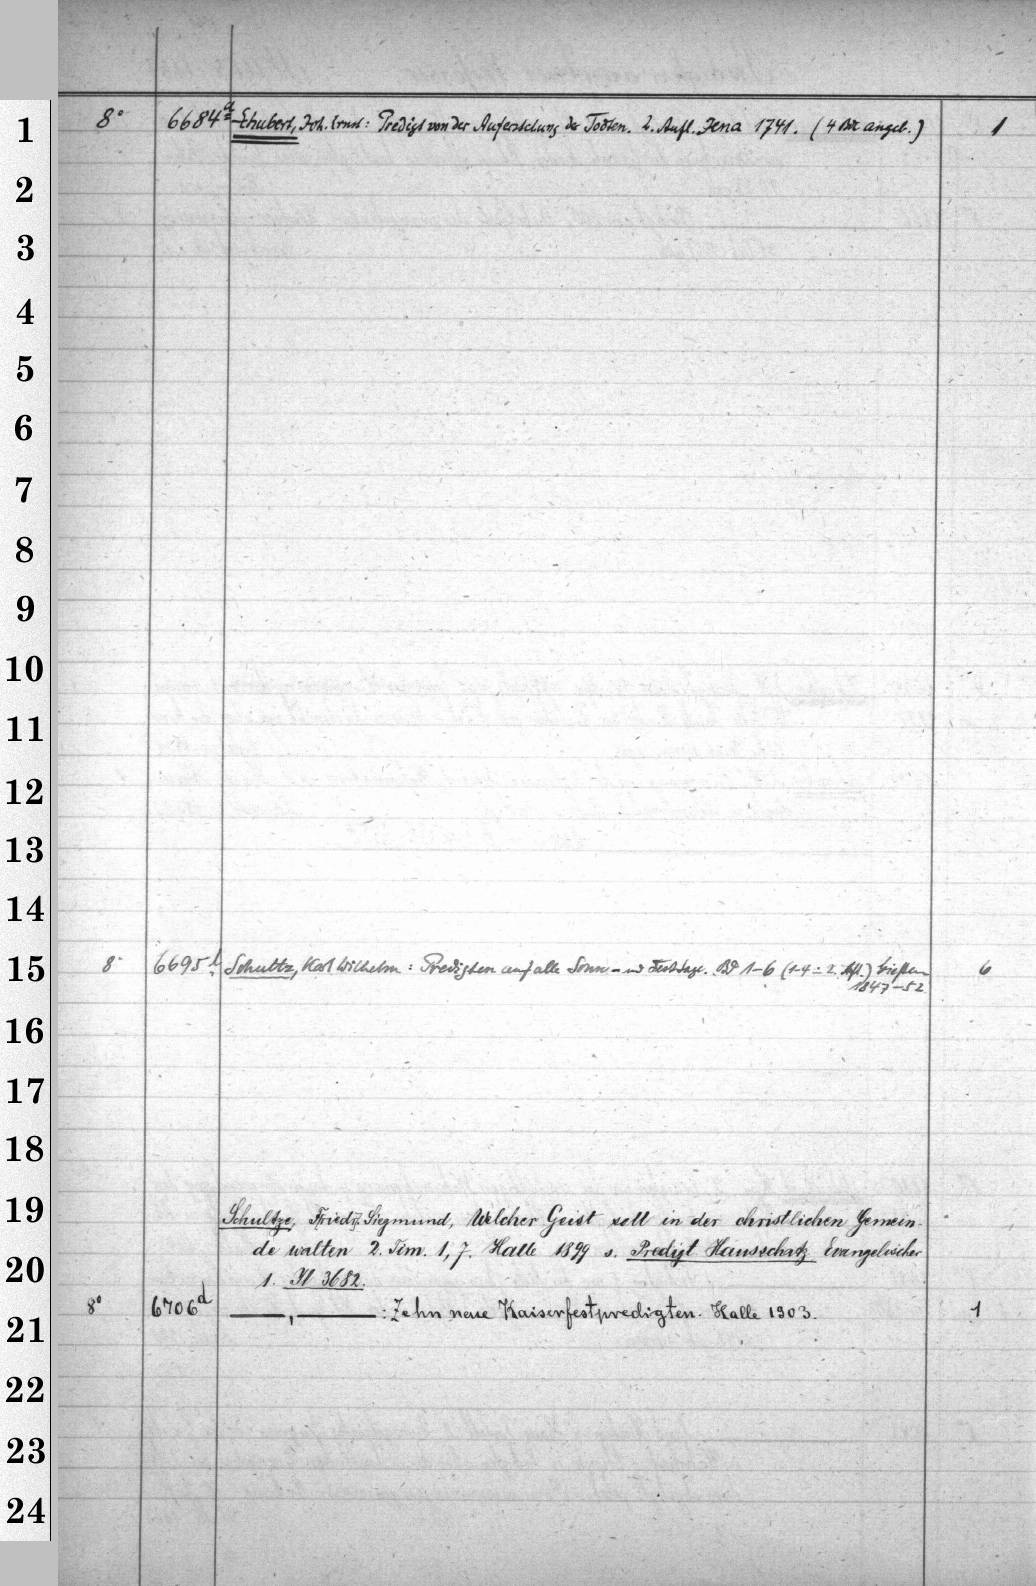 1
8° 6684a Schubert, Joh. Ernst: Predigt von der Auferstehung der Todten. 2. Aufl. Jena 1741. (4 Bde angeb.) 1
2
3
4
5
6
7
8
9
10
11
12
13
14
15
8° 6695b Schultz, Karl Wilhelm: Predigten auf alle Sonn- und Festtage. Bd 1-6 (1-4 = 2. Aufl.) 6
1847-52
16
17
18
19
Schultze, Friedr. Siegmund, Welcher Geist soll in der christlichen Gemein-
20
de walten 2. Tim. 1,7. Halle 1899 s. Predigt Hausschatz Evangelischer
1. Pl 3682.
21
8° 6706d —, —: Zehn neue Kaiserfestpredigten. Halle 1903. 1
22
23
24